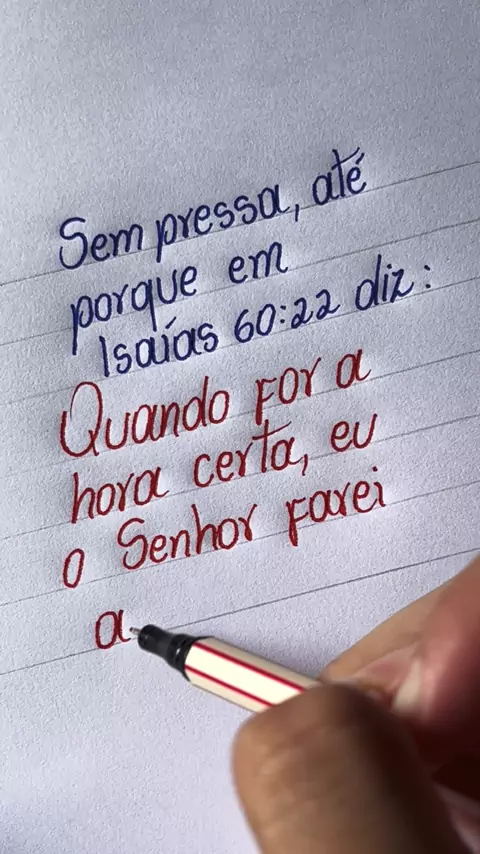 Sem pressa, até
porque em
Isaías 60:22 diz:
Quando for a
hora certa, eu
o Senhor farei
a